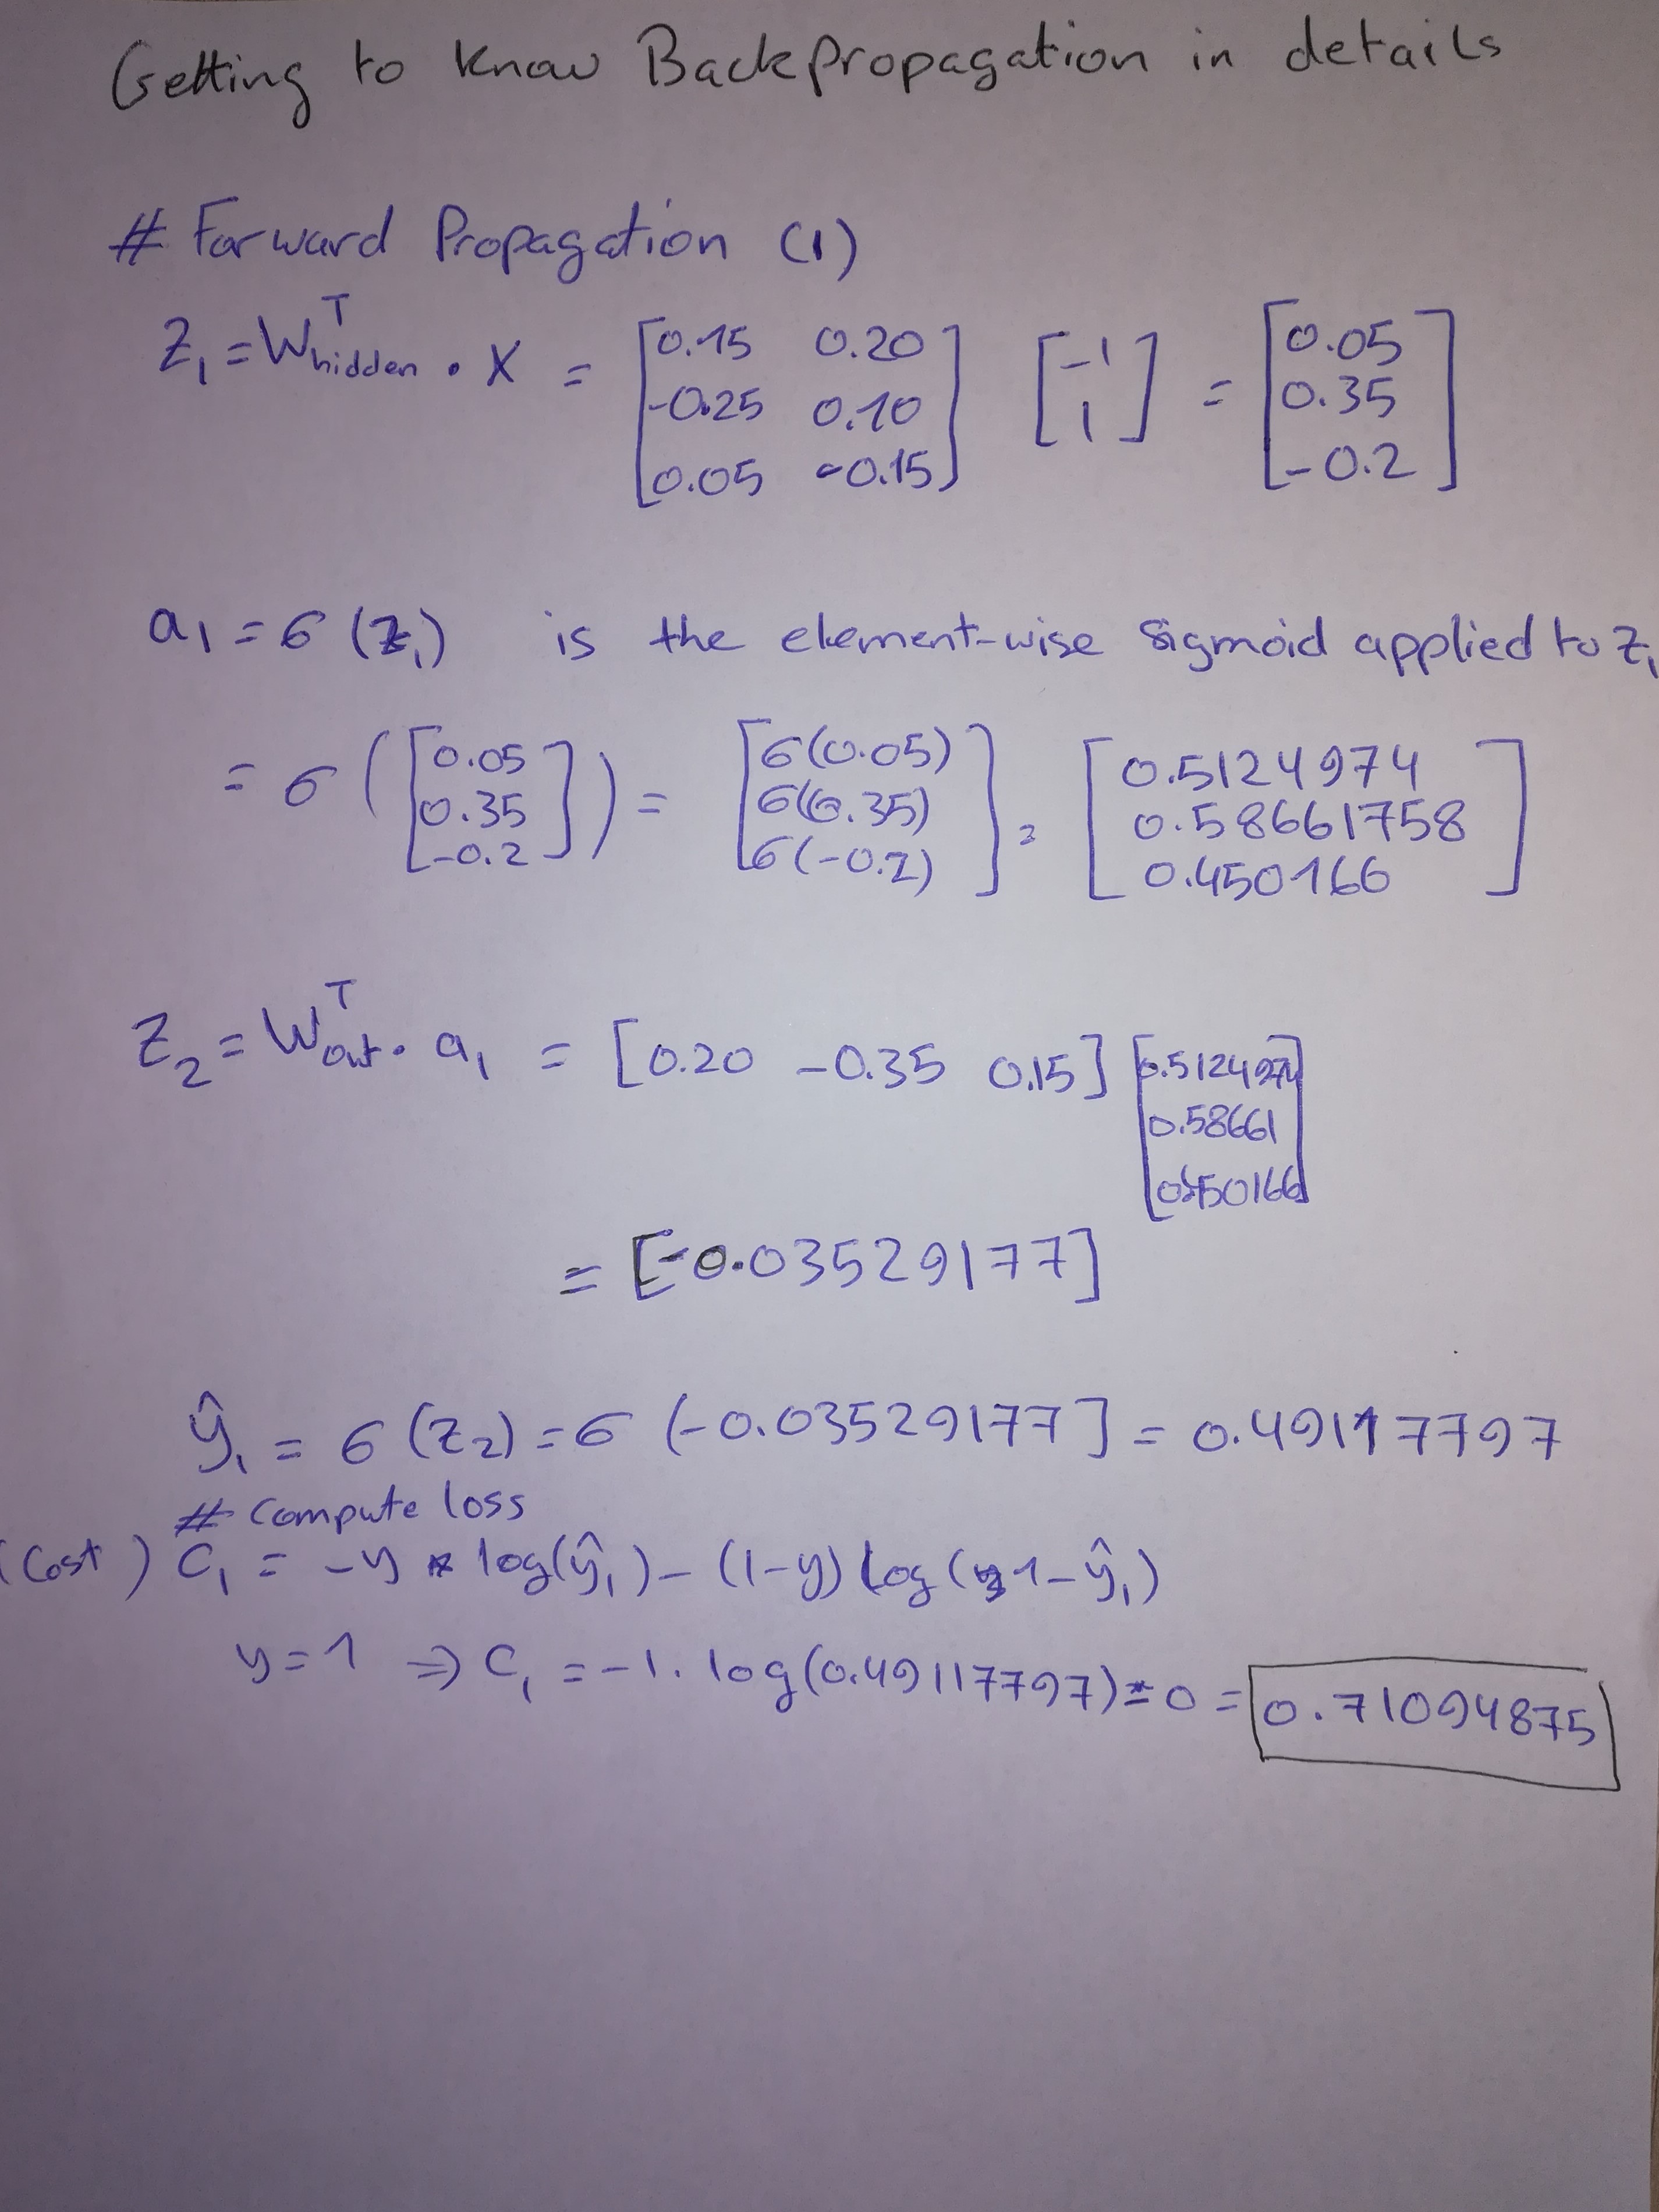 Getting to know Backpropagation in details
# Forward Propagation (1)
Z₁ = Wᵀhidden . X = [0.15 0.20; -0.25 0.10; 0.05 -0.15] [-1; 1] = [0.05; 0.35; -0.2]
a₁ = σ (z₁) is the element-wise sigmoid applied to z₁
= σ ([0.05; 0.35; -0.2]) = [σ(0.05); σ(0.35); σ(-0.2)] = [0.5124974; 0.58661758; 0.450166]
Z₂ = Wᵀout . a₁ = [0.20 -0.35 0.15] [0.512497; 0.58661; 0.450166]
= [-0.03529177]
ŷ₁ = σ (z₂) = σ (-0.03529177] = 0.49117797
# compute loss
(Cost) C₁ = -y * log(ŷ₁) - (1-y) log (1-ŷ₁)
y = 1 ⇒ C₁ = -1. log(0.49117797) - 0 = 0.71094875